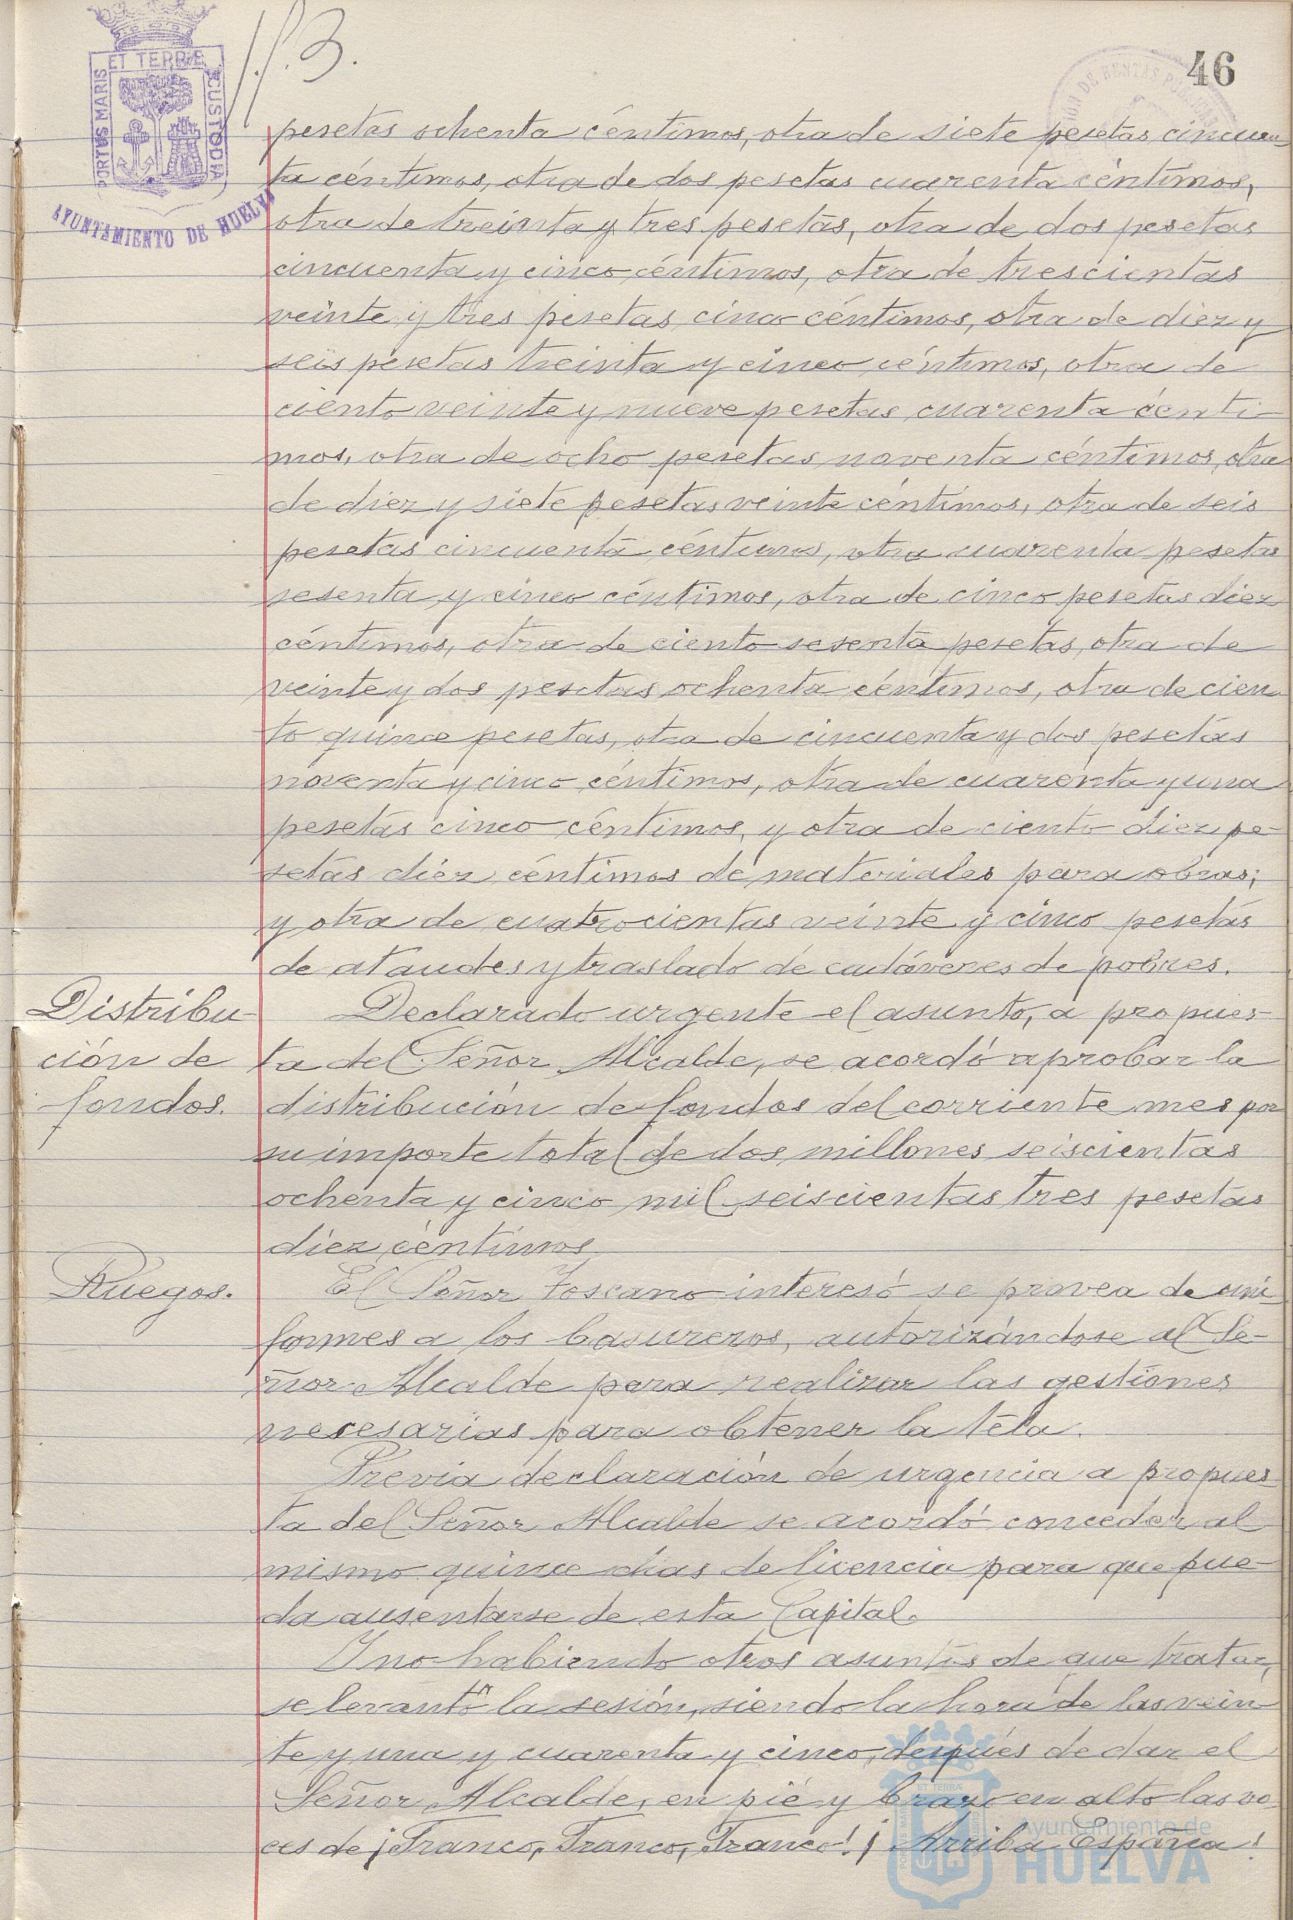 46
ET TERRÆ
PORTUS MARIS
CUSTODIA
AYUNTAMIENTO DE HUELVA
pesetas ochenta céntimos, otra de siete pesetas cincuen-
ta céntimos, otra de dos pesetas cuarenta céntimos,
otra de treinta y tres pesetas, otra de dos pesetas
cincuenta y cinco céntimos, otra de trescientas
veinte y tres pesetas cinco céntimos, otra de diez y
seis pesetas treinta y cinco céntimos, otra de
ciento veinte y nueve pesetas cuarenta cénti-
mos, otra de ocho pesetas noventa céntimos, otra
de diez y siete pesetas veinte céntimos, otra de seis
pesetas cincuenta céntimos, otra cuarenta pesetas
sesenta y cinco céntimos, otra de cinco pesetas diez
céntimos, otra de ciento sesenta pesetas, otra de
veinte y dos pesetas ochenta céntimos, otra de cien-
to quince pesetas, otra de cincuenta y dos pesetas
noventa y cinco céntimos, otra de cuarenta y una
pesetas cinco céntimos, y otra de ciento diez pe-
setas diez céntimos de materiales para obras;
y otra de cuatrocientas veinte y cinco pesetas
de ataudes y traslado de cadáveres de pobres.
Distribu-
ción de
fondos.
Declarado urgente el asunto, a propues-
ta del Señor Alcalde, se acordó aprobar la
distribución de fondos del corriente mes por
su importe total de dos millones seiscientas
ochenta y cinco mil seiscientas tres pesetas
diez céntimos.
Ruegos.
El Señor Toscano interesó se provea de uni-
formes a los basureros, autorizándose al Se-
ñor Alcalde para realizar las gestiones
necesarias para obtener la tela.
Previa declaración de urgencia a propues-
ta del Señor Alcalde se acordó conceder al
mismo quince días de licencia para que pue-
da ausentarse de esta Capital.
Y no habiendo otros asuntos de que tratar,
se levantó la sesión, siendo la hora de las vein-
te y una y cuarenta y cinco, después de dar el
Señor Alcalde, en pié y brazo en alto las vo-
ces de ¡Franco, Franco, Franco! ¡Arriba España!
Ayuntamiento de
HUELVA